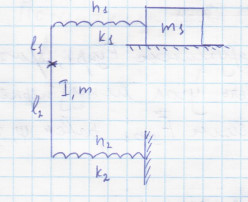 h₁
l₁ k₁ m₁
I, m
l₂
h₂
k₂